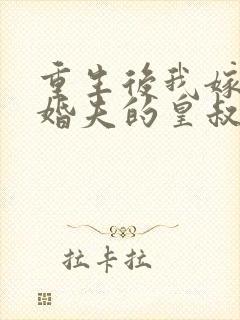 重生後我嫁
婚夫的皇叔
拉卡拉